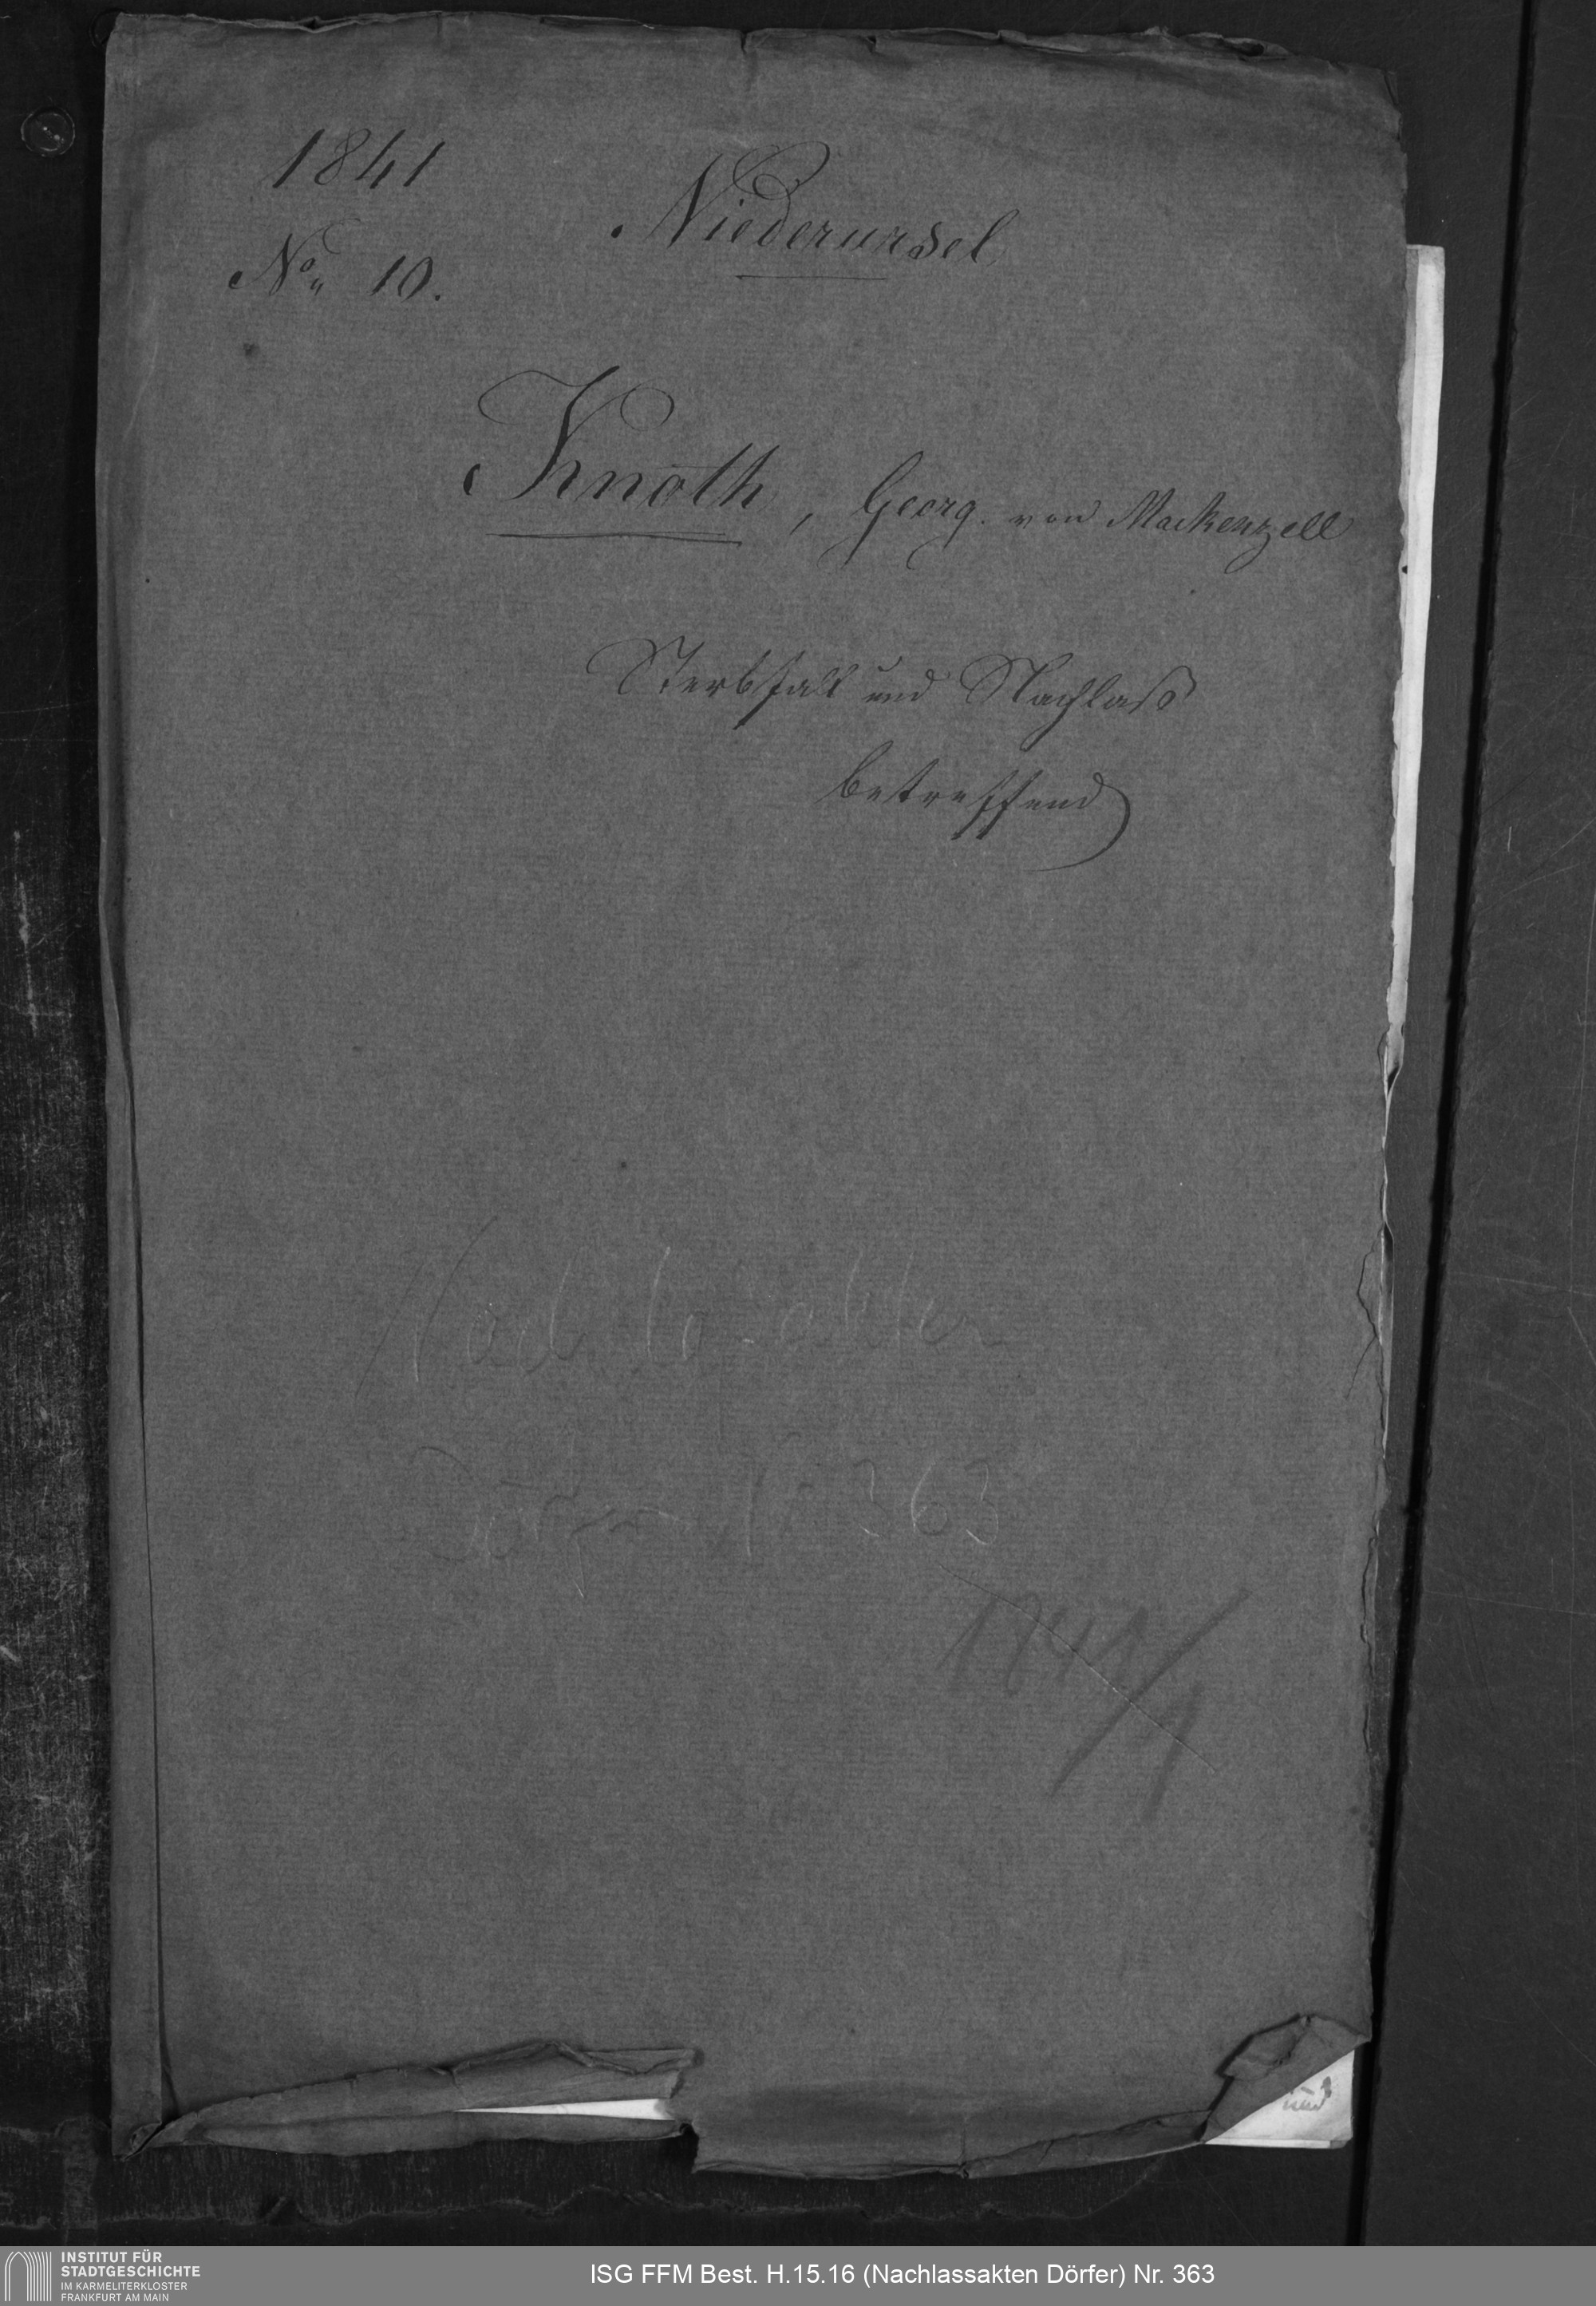 1841
Niederursel
No. 10.
Knoth, Georg. von Mackenzell
Sterbfall und Nachlaß
betreffend
Nachlaßakten
Dörfer Nr 363
1841/1
und
INSTITUT FÜR
STADTGESCHICHTE
IM KARMELITERKLOSTER
FRANKFURT AM MAIN
ISG FFM Best. H.15.16 (Nachlassakten Dörfer) Nr. 363